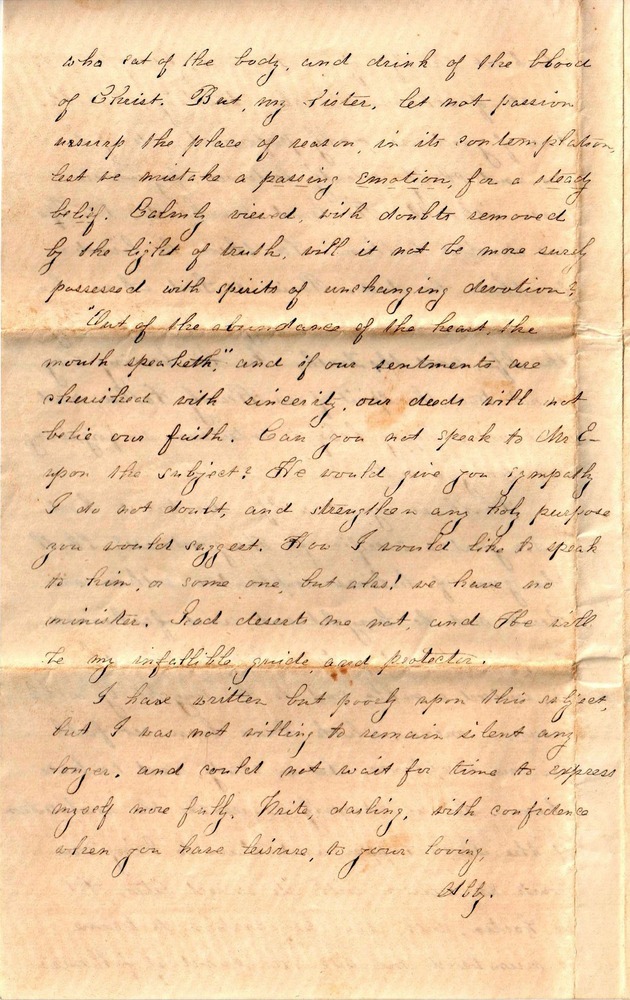 who eat of the body, and drink of the blood
of Christ. But, my sister, let not passion
usurp the place of reason, in its contemplation,
lest we mistake a passing emotion, for a steady
belief. Calmly viewed, with doubts removed
by the light of truth, will it not be more surely
possessed with spirits of unchanging devotion?
"Out of the abundance of the heart, the
mouth speaketh," and if our sentments are
cherished with sincerity, our deeds will not
belie our faith. Can you not speak to Mr E-
upon the subject? He would give you sympathy
I do not doubt, and strengthen any holy purpose
you would suggest. How I would like to speak
to him, or some one, but alas! we have no
minister. God deserts me not, and He will
be my infallible guide and protector.
I have written but poorly upon this subject,
but I was not willing to remain silent any
longer, and could not wait for time to express
myself more fully. Write, darling, with confidence
when you have leisure, to your loving,
Abby.